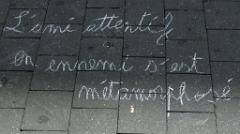 L'ami attentif
en ennemi s'est
métamorphosé